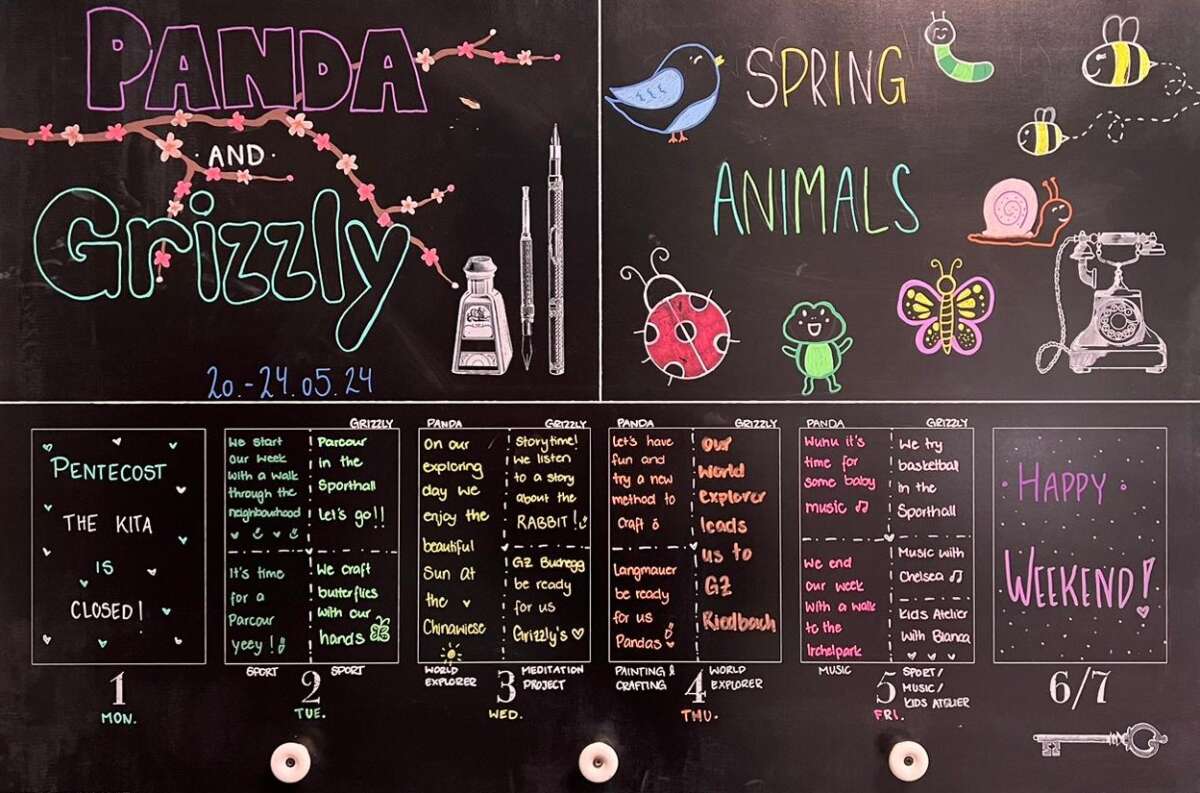 PANDA
· AND ·
Grizzly
20.-24.05.24
SPRING
ANIMALS
PENTECOST
THE KITA
IS
CLOSED!
1
MON.
We start
our week
with a walk
through the
neighbourhood
It's time
for a
Parcour
yeey!
SPORT
GRIZZLY
Parcour
in the
Sporthall
Let's go!!
We craft
butterflies
with our
hands
SPORT
2
TUE.
PANDA
On our
exploring
day we
enjoy the
beautiful
Sun at
the
Chinawiese
WORLD
EXPLORER
GRIZZLY
Storytime!
We listen
to a story
about the
RABBIT!
GZ Buchegg
be ready
for us
Grizzly's ♡
MEDITATION
PROJECT
3
WED.
PANDA
Let's have
fun and
try a new
method to
craft
Langmauer
be ready
for us
Pandas
PAINTING &
CRAFTING
GRIZZLY
Our
World
Explorer
leads
us to
GZ
Riedbach
WORLD
EXPLORER
4
THU.
PANDA
Wuhu it's
time for
some baby
music ♫
We end
our week
with a walk
to the
Irchelpark
MUSIC
GRIZZLY
We try
basketball
in the
Sporthall
Music with
Chelsea ♫
Kids Atelier
with Bianca
SPORT/
MUSIC/
KIDS ATELIER
5
FRI.
HAPPY
WEEKEND!
6/7